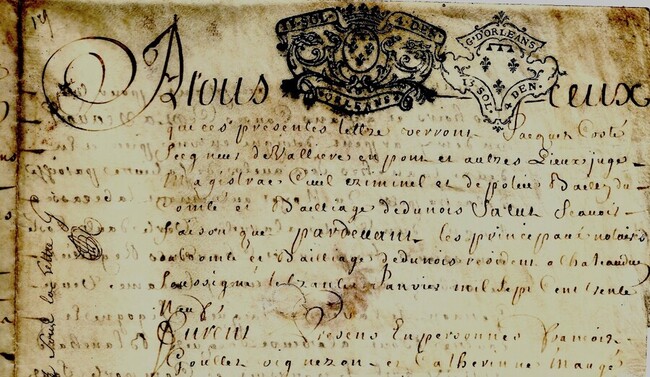 A tous ceux
13 SOL 4 DEN
ORLEANS
G. D'ORLEANS
13 SOL 4 DEN
que ces presentes lettre verront Jacques Costé
Seigneur de Valliere en pont et autres Lieux juge
Magistrac Civil Criminel et de police Bailly du
Comté et Bailliage dedunois Salut Scavoir
faison que pardevant les principaux nottaires
du Comté et Bailliage dedunois resident a Chateaudun
Soussigné le Janvier mil Sept Cent trente
Neuf
furent Presens En personnes francois
Goullet vigneron et Catherinne Maugé